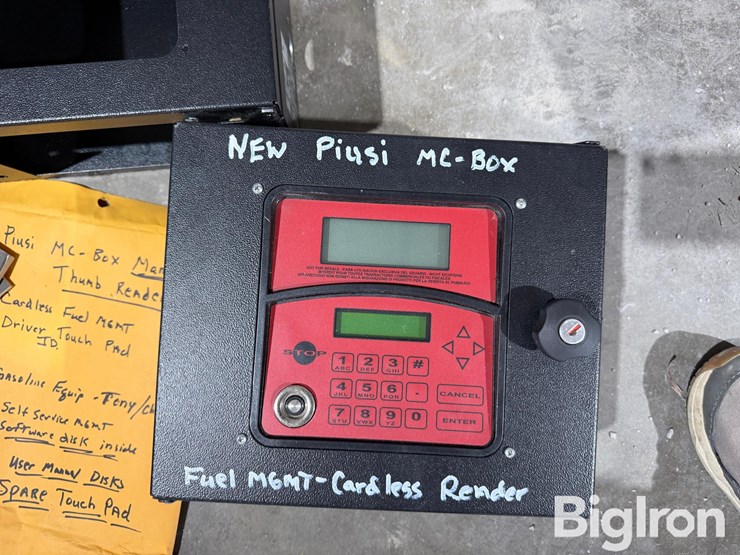 NEW PIUSI MC-BOX
NOT FOR RESALE
STOP
1 2 3 #
ABC DEF GHI
4 5 6 .
JKL MNO PQR
CANCEL
7 8 9 0
STU VWX YZ
ENTER
FUEL MGMT-Cardless Render
Piusi MC-Box Man
Thumb Render
Cardless Fuel MGMT
Driver Touch Pad
ID
Gasoline Equip - Tony/
Self Service MGMT
Software disk inside
User Manual Disks
SPARE Touch PAD
BigIron